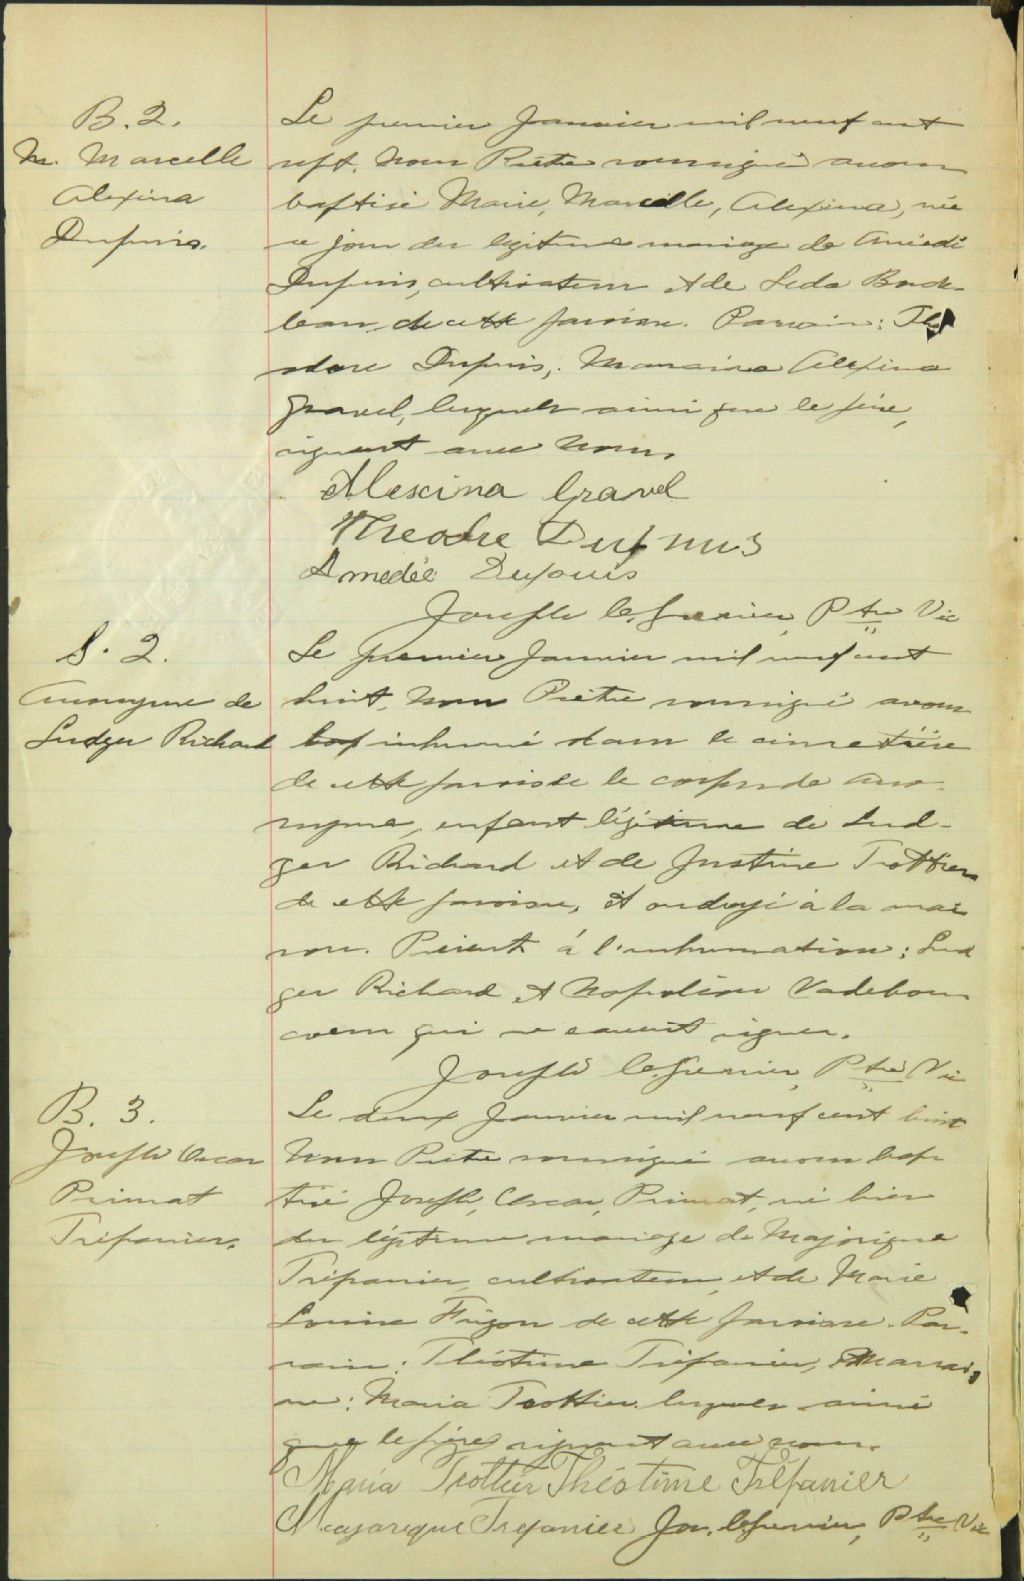 B. 2.
M. Marcelle
Alexina
Dupuis.
Le premier Janvier mil neuf cent
sept, Nous Prêtre soussigné avons
baptisé Marie, Marcelle, Alexina, née
ce jour du légitime mariage de Amédé
Dupuis, cultivateur et de Leda Borde-
leau de cette paroisse. Parrain: The
odore Dupuis, Marraine Alexina
Gravel, lesquels ainsi que le père,
signent avec Nous.
Alexina Gravel
Theodre Dupuis
Amedée Dupuis
Joseph Ptre Vic
S. 2.
Anonyme de
Ludger Richard
Le premier Janvier mil neuf cent
huit, Nous Prêtre soussigné avons
bap inhumé dans le cimetière
de cette paroisse le corps de ano-
nyme, enfant légitime de Lud-
ger Richard et de Justine Trottier
de cette paroisse, et ondoyé à la mai
son. Présents à l'inhumation: Lud
ger Richard et Napoléon Vadebon
coeur qui ne savent signer.
Joseph Ptre Vic
B. 3.
Joseph Oscar
Primat
Trépanier.
Le deux Janvier mil neuf cent huit
Nous Prêtre soussigné avons bap
tisé Joseph, Oscar, Primat, né hier
du légitime mariage de Majorique
Trépanier, cultivateur, et de Marie
Louise Frigon de cette paroisse. Par-
rain: Théotime Trépanier, Marrai
ne: Maria Trottier lesquels ainsi
que le père signent avec nous.
Maria Trottier Théotime Trépanier
Majorique Trepanier Jos. Ptre Vic